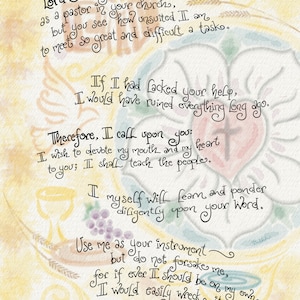 Lord
as a pastor in your churches,
but you see how unsuited I am
to meet so great and difficult a task.
If I had lacked your help,
I would have ruined everything long ago.
Therefore, I call upon you:
I wish to devote my mouth and my heart
to you; I shall teach the people.
I myself will learn and ponder
diligently upon your Word.
Use me as your instrument
but do not forsake me,
for if ever I should be on my own,
I would easily wreck it